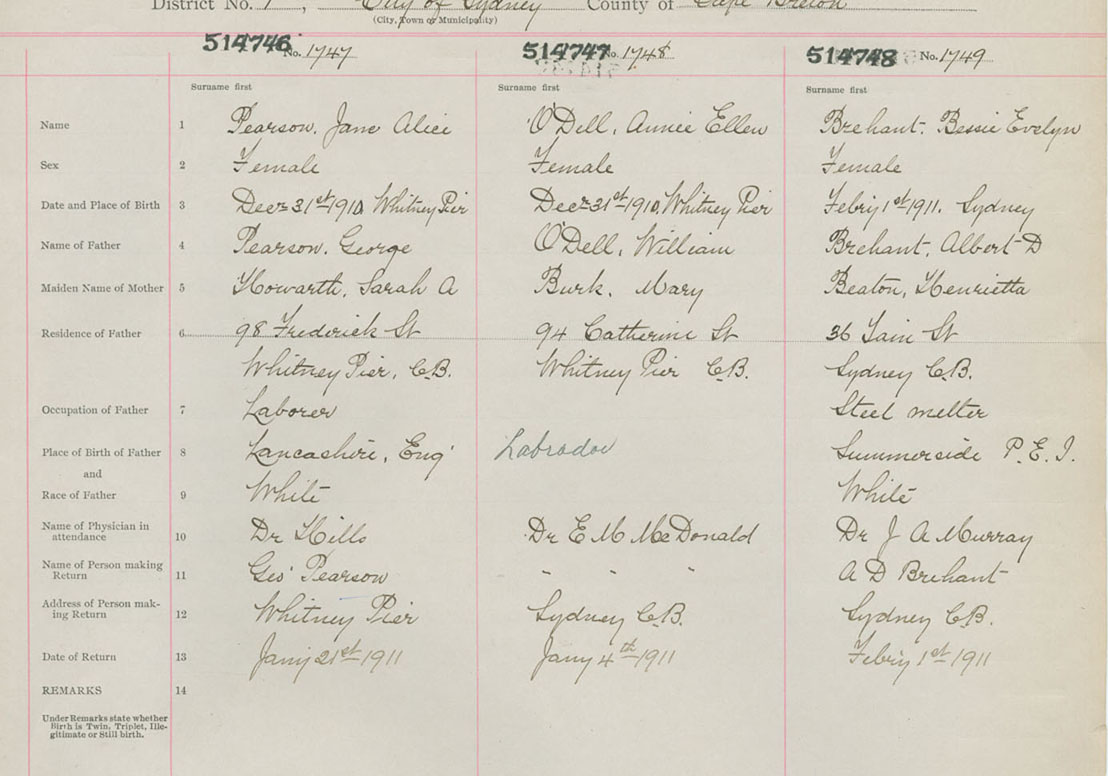 District No. 1, City of Sydney County of Cape Breton
(City, Town or Municipality)
514746 No. 1747 514747 No. 1748 514748 No. 1749
Surname first Surname first Surname first
Name 1 Pearson, Jane Alice O'Dell, Annie Ellen Brehant, Bessie Evelyn
Sex 2 Female Female Female
Date and Place of Birth 3 Decr 31st 1910, Whitney Pier Decr 31st 1910, Whitney Pier Febry 1st 1911. Sydney
Name of Father 4 Pearson, George O'Dell, William Brehant, Albert D
Maiden Name of Mother 5 Howarth, Sarah A Burk, Mary Beaton, Henrietta
Residence of Father 6 98 Frederick St 94 Catherine St 36 St
Whitney Pier, C.B. Whitney Pier C.B. Sydney C.B.
Occupation of Father 7 Laborer Steel melter
Place of Birth of Father 8 Lancashire, Eng' Labrador Summerside P.E.I.
and
Race of Father 9 White White
Name of Physician in
attendance 10 Dr Hills Dr E M McDonald Dr J A Murray
Name of Person making
Return 11 Geo' Pearson " " " A D Brehant
Address of Person mak-
ing Return 12 Whitney Pier Sydney C.B. Sydney C.B.
Date of Return 13 Jany 21st 1911 Jany 4th 1911 Febry 1st 1911
REMARKS 14
Under Remarks state whether
Birth is Twin, Triplet, Ille-
gitimate or Still birth.